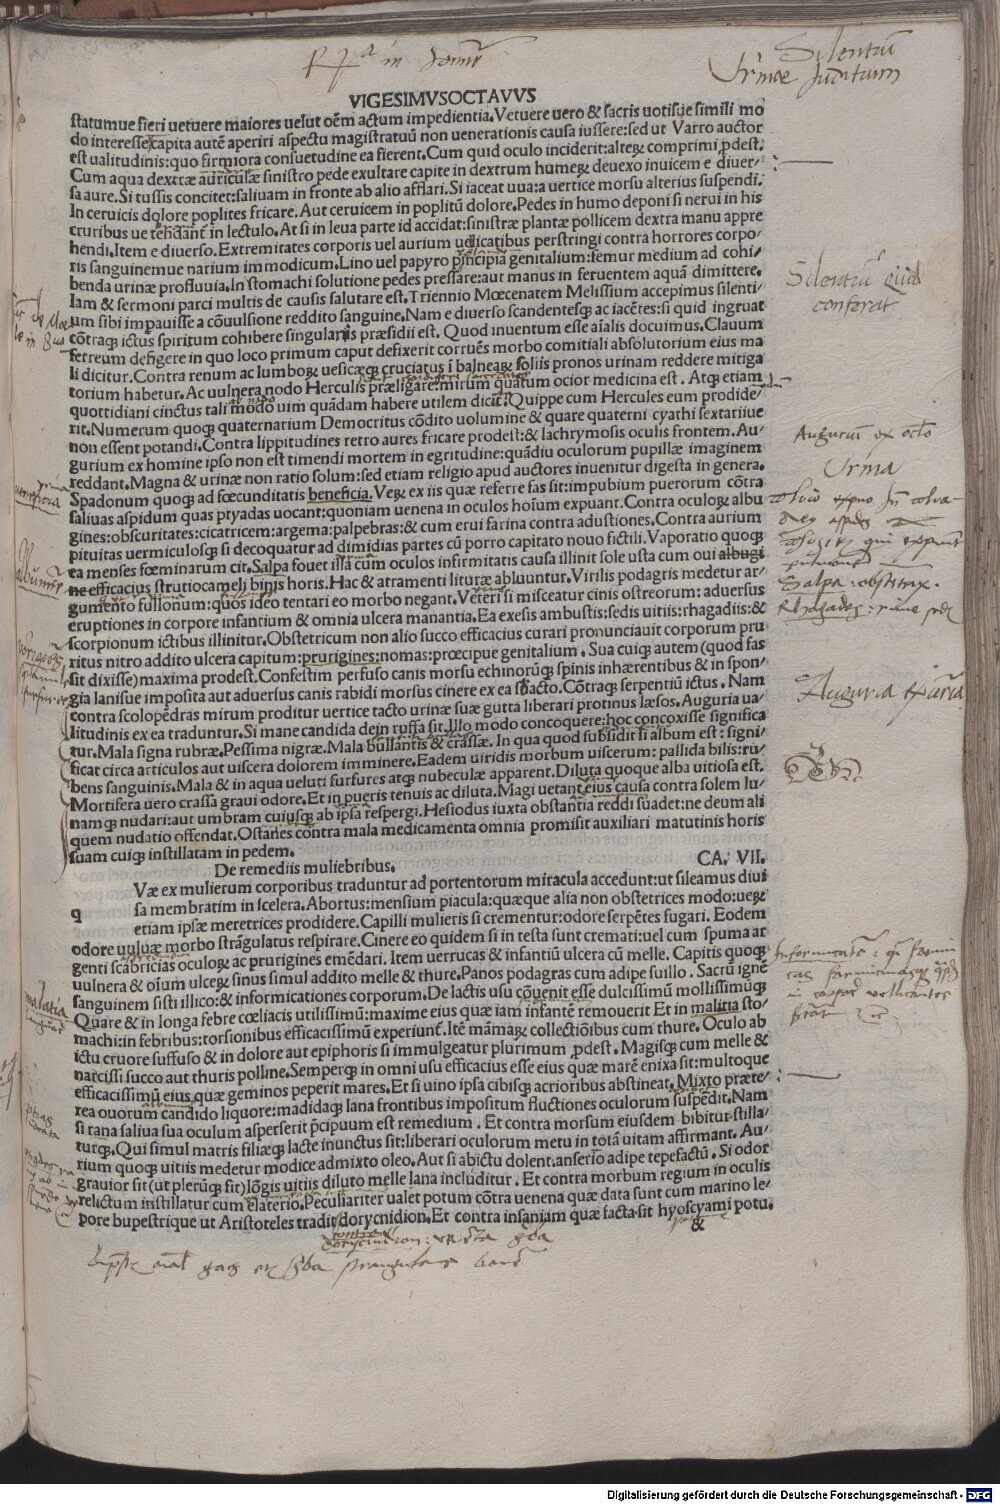 Silentiū
Urinae Juditium
VIGESIMVSOCTAVVS
statumue fieri uetuere maiores uelut oēm actum impedientia.Vetuere uero & sacris uotisue simili mo
do interesse capita autē aperiri aspectu magistratuū non uenerationis causa iussere:sed ut Varro auctor
est ualitudinis:quo firmiora consuetudine ea fierent.Cum quid oculo inciderit:alteꝝ comprimi ꝓdest.
Cum aqua dextræ auriculæ sinistro pede exultare capite in dextrum humeꝝ deuexo inuicem e diuer/
sa aure.Si tussis concitet:saliuam in fronte ab alio afflari.Si iaceat uua:a uertice morsu alterius suspendi.
In ceruicis dolore poplites fricare.Aut ceruicem in poplitū dolore.Pedes in humo deponi si nerui in his
cruribus ue tēdant in lectulo.At si in leua parte id accidat:sinistræ plantæ pollicem dextra manu appre
hendi.Item e diuerso.Extremitates corporis uel aurium uellicatibus perstringi contra horrores corpo/
ris sanguinemue narium immodicum.Lino uel papyro pīncipia genitalium:femur medium ad cohi/
benda urinæ profluuia.In stomachi solutione pedes pressare:aut manus in feruentem aquā dimittere.
Iam & sermoni parci multis de causis salutare est.Triennio Mœcenatem Melissium accepimus silenti/
um sibi impauisse a cōuulsione reddito sanguine.Nam e diuerso scandentesꝗ ac iacētes:si quid ingruat
cōtraꝗ ictus spiritum cohibere singularis præsidii est. Quod inuentum esse aīalis docuimus.Clauum
ferreum defigere in quo loco primum caput defixerit corruēs morbo comitiali absolutorium eius ma
li dicitur.Contra renum ac lumboꝝ uesicæꝗ cruciatus ī balneaꝝ soliis pronos urinam reddere mitiga
torium habetur.Ac uulnera nodo Herculis præligare:mirum quātum ocior medicina est. Atꝗ etiam
quottidiani cinctus tali modo uim quādam habere utilem dicūt.Quippe cum Hercules eum prodide/
rit.Numerum quoꝗ quaternarium Democritus cōdito uolumine & quare quaterni cyathi sextariiue
non essent potandi.Contra lippitudines retro aures fricare prodest:& lachrymosis oculis frontem.Au/
gurium ex homine ipso non est timendi mortem in egritudine:quādiu oculorum pupillæ imaginem
reddant.Magna & urinæ non ratio solum:sed etiam religio apud auctores inuenitur digesta in genera.
Spadonum quoꝗ ad fœcunditatis beneficia.Veꝝ ex iis quæ referre fas sit:impubium puerorum cōtra
saliuas aspidum quas ptyadas uocant:quoniam uenena in oculos hoīum expuant.Contra oculoꝝ albu
gines:obscuritates:cicatricem:argema:palpebras:& cum erui farina contra adustiones.Contra aurium
pituitas uermiculosꝗ si decoquatur ad dimidias partes cū porro capitato nouo fictili.Vaporatio quoꝗ
ea menses fœminarum cit.Salpa fouet illā cum oculos infirmitatis causa illinit sole usta cum oui albugi
ne efficacius strutiocameli binis horis.Hac & atramenti lituræ abluuntur.Virilis podagris medetur ar/
gumento fullonum:quos ideo tentari eo morbo negant.Veteri si misceatur cinis ostreorum: aduersus
eruptiones in corpore infantium & omnia ulcera manantia.Ea exesis ambustis:sedis uitiis:rhagadiis:&
scorpionum ictibus illinitur.Obstetricum non alio succo efficacius curari pronunciauit corporum pru
ritus nitro addito ulcera capitum:prurigines:nomas:præcipue genitalium. Sua cuiꝗ autem (quod fas
sit dixisse) maxima prodest.Confestim perfuso canis morsu echinorūꝗ spinis inhærentibus & in spon/
gia lanisue imposita aut aduersus canis rabidi morsus cinere ex ea sbacto.Cōtraꝗ serpentiū ictus. Nam
contra scolopēdras mirum proditur uertice tacto urinæ suæ gutta liberari protinus læsos.Auguria ua/
litudinis ex ea traduntur.Si mane candida dein ruffa sit.Illo modo concoquere:hoc concoxisse significa
tur.Mala signa rubræ.Pessima nigræ.Mala bullantis & crassæ. In qua quod subsidit si album est: signi/
ficat circa articulos aut uiscera dolorem imminere.Eadem uiridis morbum uiscerum: pallida bilis:ru/
bens sanguinis.Mala & in aqua ueluti furfures atꝗ nubeculæ apparent.Diluta quoque alba uitiosa est.
Mortifera uero crassa graui odore.Et in pueris tenuis ac diluta.Magi uetant eius causa contra solem lu/
namꝗ nudari:aut umbram cuiusꝗ ab ipsa respergi.Hesiodus iuxta obstantia reddi suadet:ne deum ali
quem nudatio offendat.Ostanes contra mala medicamenta omnia promisit auxiliari matutinis horis
suam cuiꝗ instillatam in pedem.
De remediis muliebribus. CA. VII.
q Væ ex mulierum corporibus traduntur ad portentorum miracula accedunt:ut sileamus diui
sa membratim in scelera.Abortus:mensium piacula:quæque alia non obstetrices modo:ueꝝ
etiam ipsæ meretrices prodidere.Capilli mulieris si crementur:odore serpētes fugari. Eodem
odore uuluæ morbo strāgulatus respirare.Cinere eo quidem si in testa sunt cremati:uel cum spuma ar
genti scabricias oculoꝝ ac prurigines emēdari. Item uerrucas & infantiū ulcera cū melle. Capitis quoꝗ
uulnera & oīum ulceꝝ sinus simul addito melle & thure.Panos podagras cum adipe suillo. Sacrū ignē
sanguinem sisti illico:& informicationes corporum.De lactis usu cōuenit esse dulcissimū mollissimūꝗ
Quare & in longa febre cœliacis utilissimū:maxime eius quæ iam infantē remouerit Et in malitia sto/
machi:in febribus:torsionibus efficacissimū experiunt̄.Itē māmaꝝ collectiōibus cum thure. Oculo ab
ictu cruore suffuso & in dolore aut epiphoris si immulgeatur plurimum ꝓdest. Magisꝗ cum melle &
narcissi succo aut thuris polline.Semperꝗ in omni usu efficacius esse eius quæ marē enixa sit:multoque
efficacissimū eius quæ geminos peperit mares.Et si uino ipsa cibisꝗ acrioribus abstineat.Mixto præte/
rea ouorum candido liquore:madidaꝗ lana frontibus impositum fluctiones oculorum suspēdit.Nam
si rana saliua sua oculum asperserit p̄cipuum est remedium. Et contra morsum eiusdem bibitur stilla/
turꝗ. Qui simul matris filiæꝗ lacte inunctus sit:liberari oculorum metu in totā uitam affirmant. Au/
rium quoꝗ uitiis medetur modice admixto oleo. Aut si abictu dolent.anserīo adipe tepefactū. Si odor
grauior sit (ut plerūꝗ fit) lōgis uitiis diluto melle lana includitur. Et contra morbum regium in oculis
relictum instillatur cum elaterio.Peculiariter ualet potum cōtra uenena quæ data sunt cum marino le/
pore bupestrique ut Aristoteles tradit dorycnidion.Et contra insaniam quæ facta sit hyoscyami potu.
&
Silentiū quid
conferat
Augurium ex oculo
Urina
Salpa: obstetrix.
Auguria ex urina
malatia
Digitalisierung gefördert durch die Deutsche Forschungsgemeinschaft - DFG